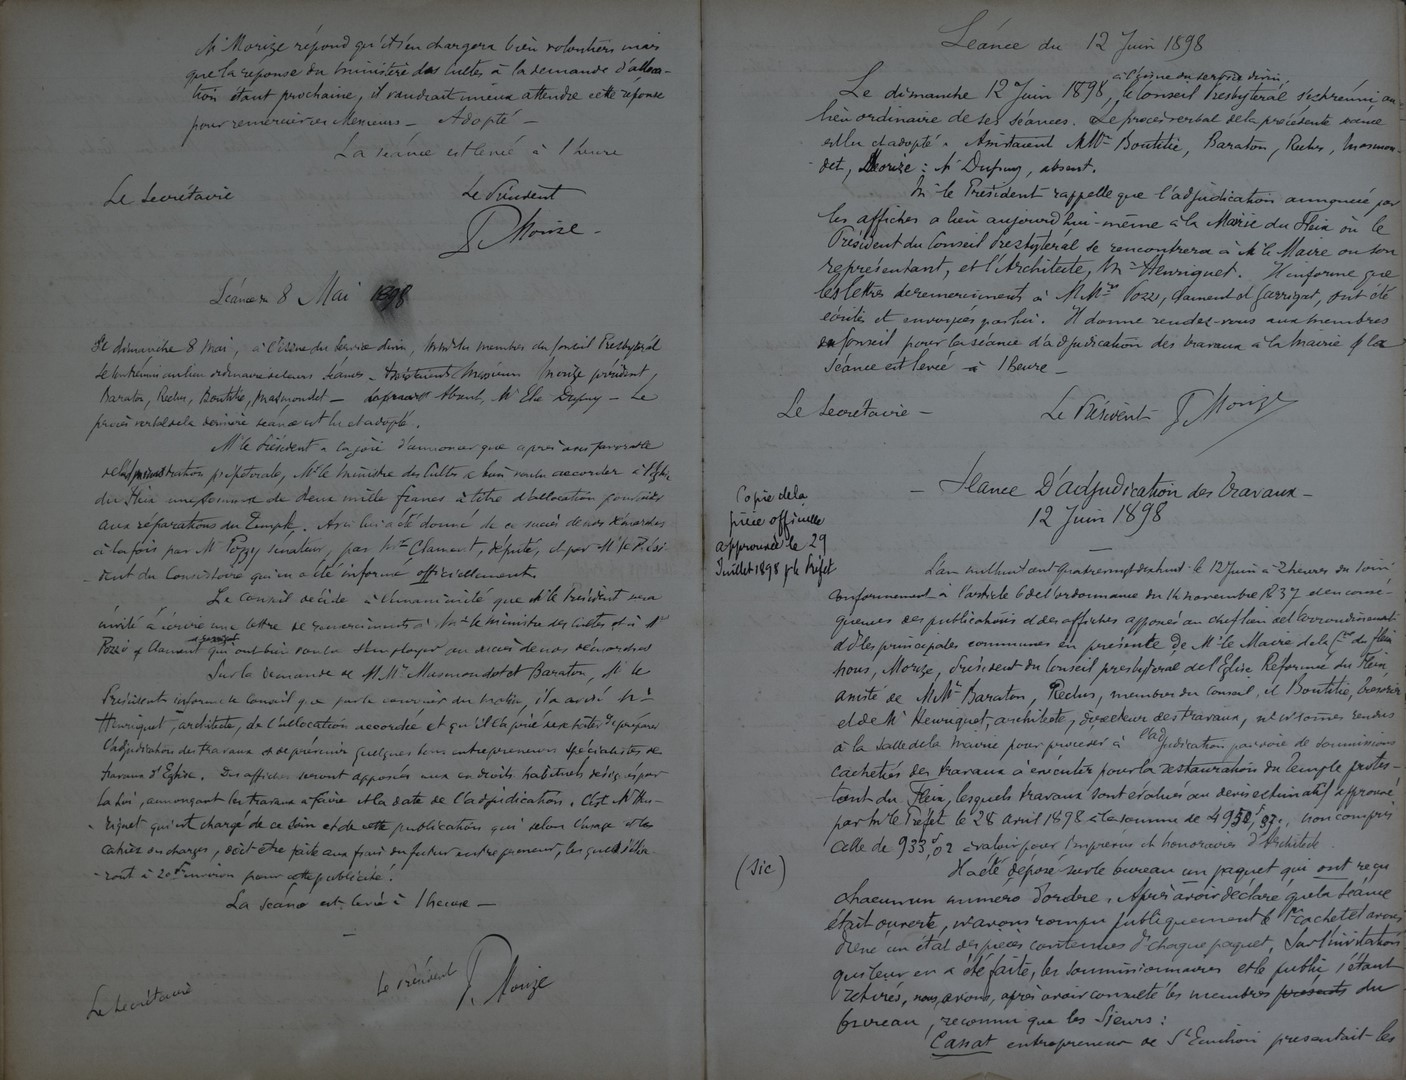 Mr Morize répond qu'il s'en chargera bien volontiers mais
que la réponse du ministère des Cultes à la demande d'alloca-
tion étant prochaine, il vaudrait mieux attendre cette réponse
pour remercier ces Messieurs — Adopté —
La séance est levée à 1 heure
Le Secrétaire
Le Président
P. Morize
Séance du 8 Mai 1898
Le dimanche 8 Mai, à l'issue du service divin, MM les membres du Conseil Presbytéral
se sont réunis au lieu ordinaire de leurs séances. Assistaient Messieurs Morize président,
Baraton, Reclus, Boutitie, Masmondet — Absent, Mr Elie Dupuy — Le
procès verbal de la dernière séance est lu et adopté.
M. le Président a la joie d'annoncer que après avis favorable
de l'administration préfectorale, Mr le Ministre des Cultes a bien voulu accorder à l'Eglise
du Fleix une somme de deux mille francs à titre d'allocation pour aider
aux réparations du Temple. Avis lui a été donné de ce succès de nos démarches
à la fois par Mr Pozzy sénateur, par Mr Clament, député, et par Mr le Prési
-dent du Consistoire qui en a été informé officiellement.
Le Conseil décide à l'unanimité que Mr le Président sera
invité à écrire une lettre de remerciements à Mr le Ministre des Cultes et à Mrs
Pozzi & Clament & Garrigat qui ont bien voulu s'employer au succès de nos démarches
Sur la demande de M.Mrs Masmondet et Baraton, Mr le
Président informe le Conseil que par le courrier du matin, il a avisé Mr
Henriquet, architecte, de l'allocation accordée et qu'il l'a prié de se hâter de préparer
l'adjudication des travaux et de prévenir quelques bons entrepreneurs spécialistes de
travaux d'Eglise. Des affiches seront apposées aux endroits habituels désignés par
la Loi, annonçant les travaux à faire et la date de l'adjudication. C'est Mr Hen-
riquet qui est chargé de ce soin et de cette publication qui selon l'usage et les
cahiers des charges, doit être faite aux frais du futur entrepreneur, lesquels s'élè-
-ront à 20f environ pour cette publicité.
La séance est levée à 1 heure —
Le Secrétaire
Le Président
P. Morize
Séance du 12 Juin 1898
à l'issue du service divin,
Le dimanche 12 Juin 1898, le Conseil Presbytéral s'est réuni au
lieu ordinaire de ses séances. Le procès verbal de la précédente séance
est lu et adopté. Assistaient MMrs Boutitie, Baraton, Reclus, Masmon-
-det, Morize : Mr Dupuy, absent.
Mr le Président rappelle que l'adjudication annoncée par
les affiches a lieu aujourd'hui-même à la Mairie du Fleix où le
Président du Conseil Presbytéral se rencontrera à Mr le Maire ou son
représentant, et l'Architecte, Mr Henriquet. Il informe que
les lettres de remerciements à M.Mrs Pozzi, Clament et Garrigat, ont été
écrites et envoyées par lui. Il donne rendez-vous aux membres
du Conseil pour la séance d'adjudication des travaux à la mairie & la
séance est levée à 1 heure —
Le Secrétaire —
Le Président P. Morize
— Séance D'adjudication des travaux —
12 Juin 1898
Copie de la
pièce officielle
approuvée le 29
Juillet 1898 p. le Préfet
L'an mil huit cent quatre vingt dix huit le 12 Juin à 2 heures du soir
conformément à l'article 6 de l'ordonnance du 14 novembre 1837 et en consé-
quences des publications et des affiches apposées au chef lieu de l'arrondissement
et des principales communes en présence de Mr le Maire de la Cne du Fleix
nous, Morize, Président du Conseil presbytéral de l'Eglise Réformée du Fleix,
assisté de M.Mrs Baraton, Reclus, membres du Conseil, et Boutitie, trésorier
et de Mr Henriquet, architecte, directeur des travaux, nous sommes rendus
à la Salle de la Mairie pour procéder à l'adjudication par voie de soumissions
cachetées des travaux à exécuter pour la restauration du Temple protes-
tant du Fleix, lesquels travaux sont évalués au devis estimatif approuvé
par Mr le Préfet le 28 avril 1898 à la somme de non compris
celle de 933f,02 à valoir pour imprévus et honoraires d'Architecte.
(Sic)
Il a été déposé sur le bureau un paquet qui ont reçu
chacun un numéro d'ordre. Après avoir déclaré que la séance
était ouverte, nous avons rompu publiquement le 1er cachet et avons
dressé un état des pièces contenues en chaque paquet. Sur l'invitation
qui leur en a été faite, les soumissionnaires et le public s'étant
retirés, nous avons, après avoir consulté les membres présents du
bureau, reconnu que les Sieurs :
Cassat entrepreneur de St Emilion présentait les